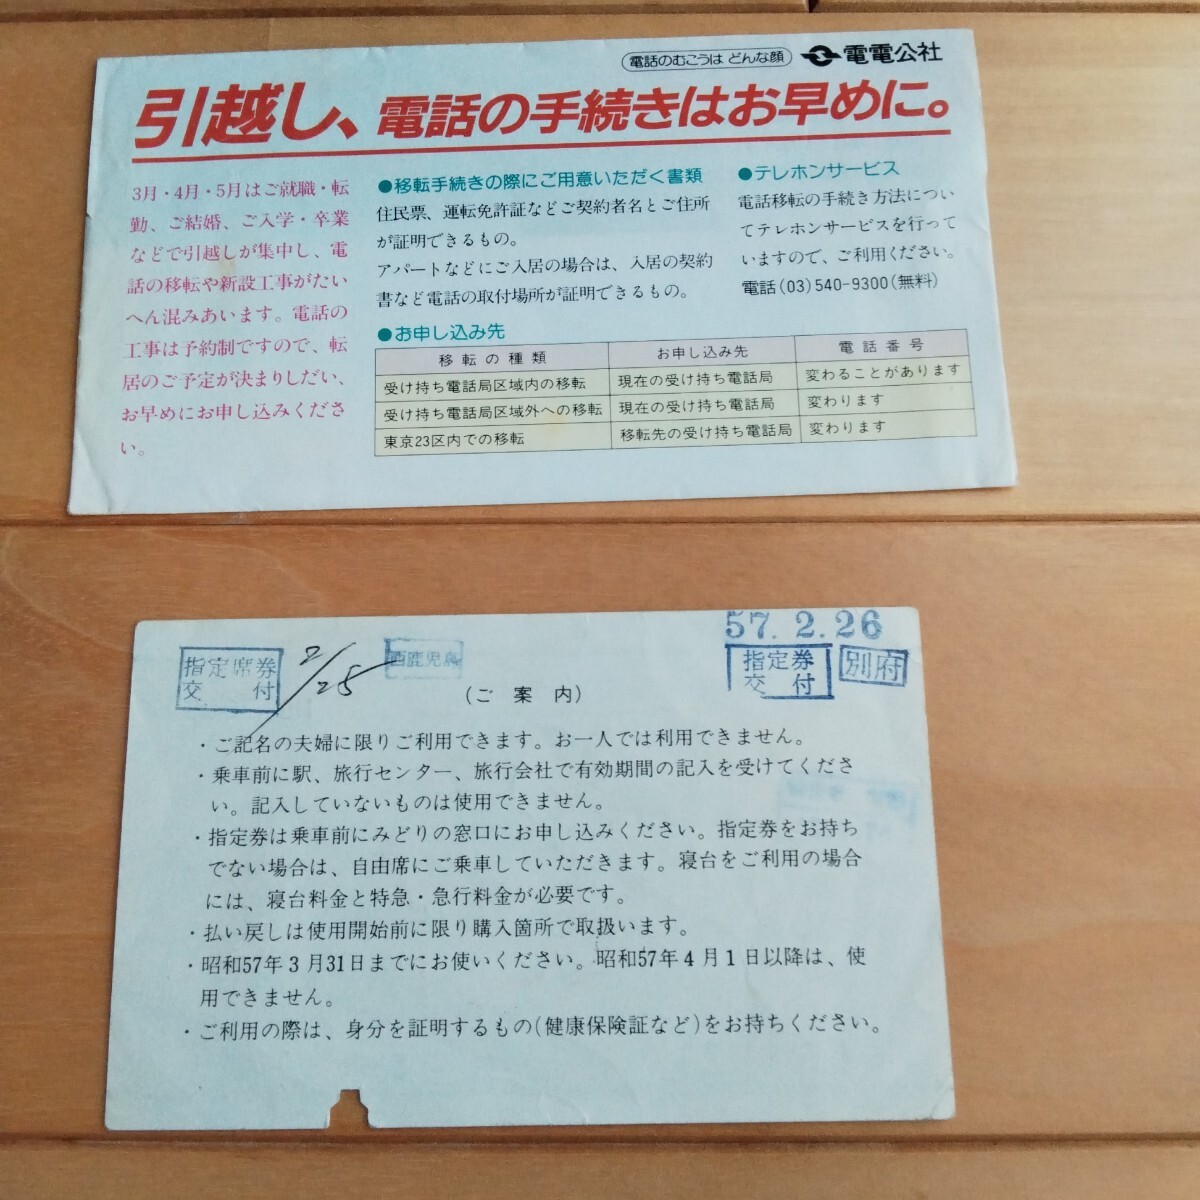 電話のむこうは どんな顔 電電公社
引越し、電話の手続きはお早めに。
3月・4月・5月はご就職・転
勤、ご結婚、ご入学・卒業
などで引越しが集中し、電
話の移転や新設工事がたい
へん混みあいます。電話の
工事は予約制ですので、転
居のご予定が決まりしだい、
お早めにお申し込みくださ
い。
●移転手続きの際にご用意いただく書類
住民票、運転免許証などご契約者名とご住所
が証明できるもの。
アパートなどにご入居の場合は、入居の契約
書など電話の取付場所が証明できるもの。
●テレホンサービス
電話移転の手続き方法につい
てテレホンサービスを行って
いますので、ご利用ください。
電話(03)540-9300(無料)
●お申し込み先
移転の種類 お申し込み先 電話番号
受け持ち電話局区域内の移転 現在の受け持ち電話局 変わることがあります
受け持ち電話局区域外への移転 現在の受け持ち電話局 変わります
東京23区内での移転 移転先の受け持ち電話局 変わります
57.2.26
指定席券
交付
2/25
西鹿児島
指定券
交付
別府
(ご案内)
・ご記名の夫婦に限りご利用できます。お一人では利用できません。
・乗車前に駅、旅行センター、旅行会社で有効期間の記入を受けてくださ
い。記入していないものは使用できません。
・指定券は乗車前にみどりの窓口にお申し込みください。指定券をお持ち
でない場合は、自由席にご乗車していただきます。寝台をご利用の場合
には、寝台料金と特急・急行料金が必要です。
・払い戻しは使用開始前に限り購入箇所で取扱います。
・昭和57年3月31日までにお使いください。昭和57年4月1日以降は、使
用できません。
・ご利用の際は、身分を証明するもの(健康保険証など)をお持ちください。